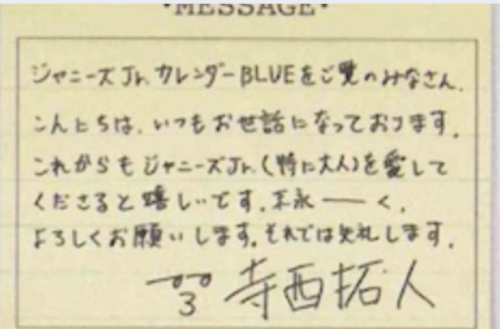 ・MESSAGE・
ジャニーズJr.カレンダーBLUEをご覧のみなさん、
こんにちは、いつもお世話になっております。
これからもジャニーズJr.(特に大人)を愛して
くださると嬉しいです。末永──く、
よろしくお願いします。それでは失礼します。
寺西拓人